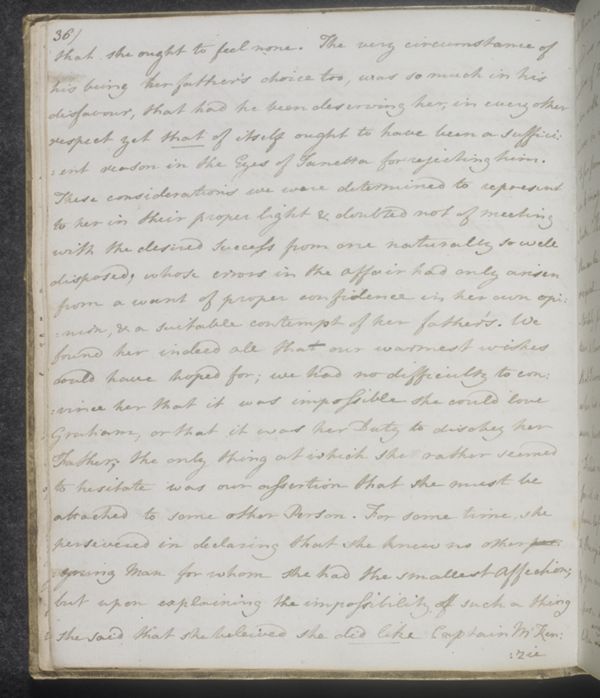 36/
that she ought to feel none. The very circumstance of
his being her father's choice too, was so much in his
disfavour, that had he been deserving her, in every other
respect yet that of itself ought to have been a suffici:
:ent reason in the Eyes of Janetta for rejecting him.
These considerations we were determined to represent
to her in their proper light & doubted not of meeting
with the desired Success from one naturally so well
disposed, whose errors in the affair had only arisen
from a want of proper confidence in her own opi:
:nion, & a suitable contempt of her father's. We
found her indeed all that our warmest wishes
could have hoped for; we had no difficulty to con:
:vince her that it was impossible she could love
Graham, or that it was her Duty to disobey her
Father; the only thing at which she rather seemed
to hesitate was our assertion that she must be
attached to some other Person. For some time, she
persevered in declaring that she knew no other
young Man for whom she had the smallest Affection;
but upon explaining the impossibility of such a thing
she said that she beleived she did like Captain M'Ken:
:zie